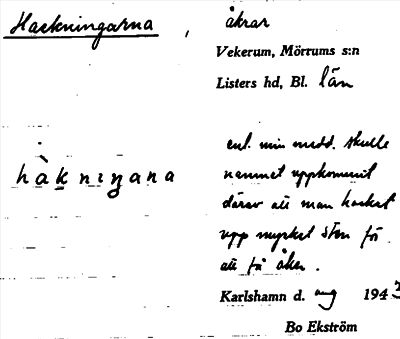 Hackningarna, åkrar
Vekerum, Mörrums s:n
Listers hd, Bl. län
hàkniŋana
enl. min medd. skulle
namnet uppkommit
därav att man hackat
upp mycket sten för
att få åker.
Karlshamn d. aug 1943
Bo Ekström